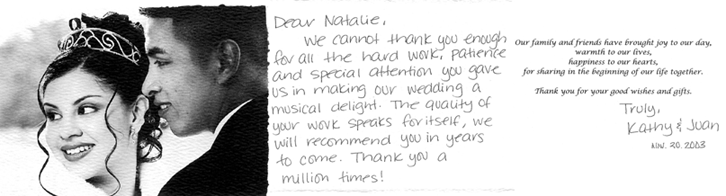 Dear Natalie,
We cannot thank you enough
for all the hard work, patience
and special attention you gave
us in making our wedding a
musical delight. The quality of
your work speaks for itself, we
will recommend you in years
to come. Thank you a
million times!
Our family and friends have brought joy to our day,
warmth to our lives,
happiness to our hearts,
for sharing in the beginning of our life together.
Thank you for your good wishes and gifts.
Truly,
Kathy & Juan
Nov. 20. 2003